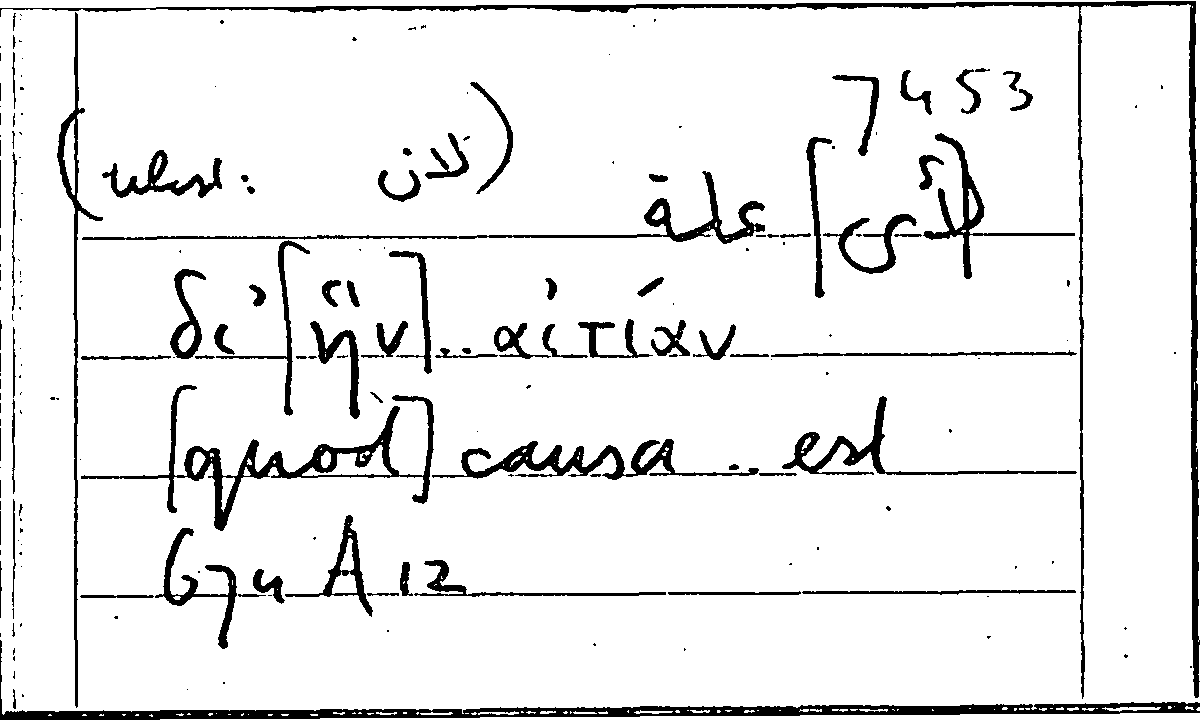 7453
( : لان) [لأى] علة
δι᾽ [ἣν] .. αἰτίαν
[quod] causa .. est
674 A 12